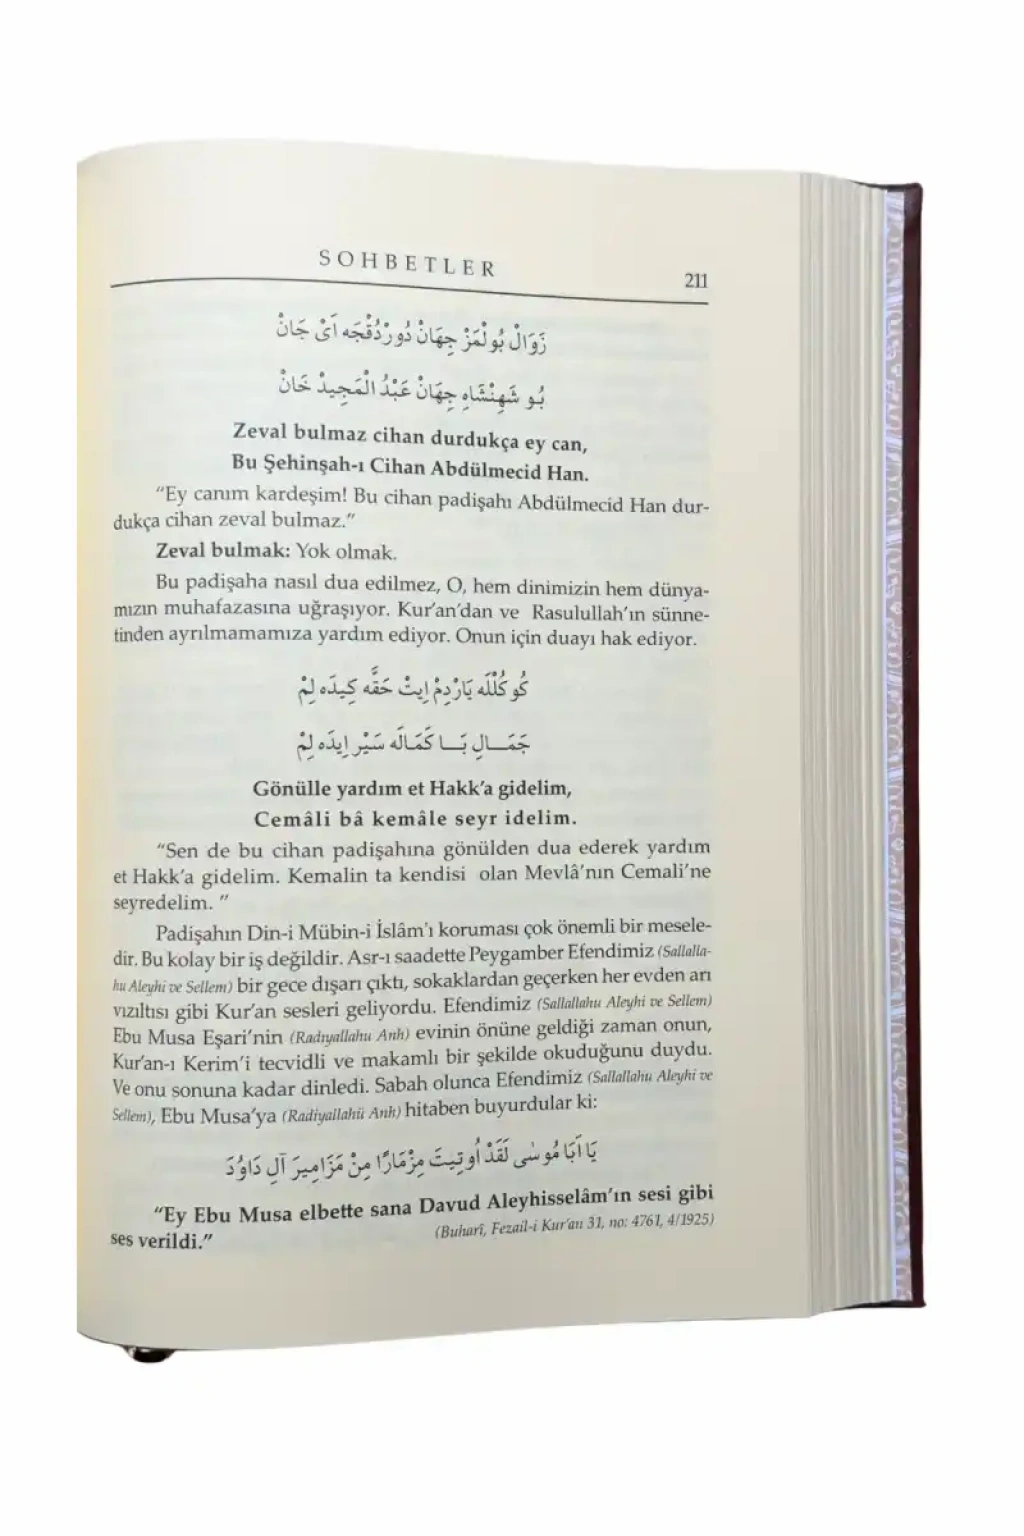 SOHBETLER
211
زَوَالْ بُولْمَزْ جِهَانْ دُورْدُقْجَه اَىْ جَانْ
بُو شَهِنْشَاهِ جِهَانْ عَبْدُ الْمَجِيدْ خَانْ
Zeval bulmaz cihan durdukça ey can,
Bu Şehinşah-ı Cihan Abdülmecid Han.
"Ey canım kardeşim! Bu cihan padişahı Abdülmecid Han dur-
dukça cihan zeval bulmaz."
Zeval bulmak: Yok olmak.
Bu padişaha nasıl dua edilmez, O, hem dinimizin hem dünya-
mızın muhafazasına uğraşıyor. Kur'an'dan ve Rasulullah'ın sünne-
tinden ayrılmamamıza yardım ediyor. Onun için duayı hak ediyor.
كُوكُلْلَه يَارْدِمْ اِيتْ حَقَّه كِيدَه لِمْ
جَمَالِ بَا كَمَالَه سَيْر اِيدَه لِمْ
Gönülle yardım et Hakk'a gidelim,
Cemâli bâ kemâle seyr idelim.
"Sen de bu cihan padişahına gönülden dua ederek yardım
et Hakk'a gidelim. Kemalin ta kendisi olan Mevlâ'nın Cemali'ne
seyredelim. "
Padişahın Din-i Mübin-i İslâm'ı koruması çok önemli bir mesele-
dir. Bu kolay bir iş değildir. Asr-ı saadette Peygamber Efendimiz (Sallalla-
hu Aleyhi ve Sellem) bir gece dışarı çıktı, sokaklardan geçerken her evden arı
vızıltısı gibi Kur'an sesleri geliyordu. Efendimiz (Sallallahu Aleyhi ve Sellem)
Ebu Musa Eşari'nin (Radıyallahu Anh) evinin önüne geldiği zaman onun,
Kur'an-ı Kerim'i tecvidli ve makamlı bir şekilde okuduğunu duydu.
Ve onu sonuna kadar dinledi. Sabah olunca Efendimiz (Sallallahu Aleyhi ve
Sellem), Ebu Musa'ya (Radiyallahü Anh) hitaben buyurdular ki:
يَا اَبَا مُوسٰى لَقَدْ اُوتِيتَ مِزْمَارًا مِنْ مَزَامِيرَ آلِ دَاوُدَ
"Ey Ebu Musa elbette sana Davud Aleyhisselâm'ın sesi gibi
ses verildi."
(Buharî, Fezail-i Kur'an 31, no: 4761, 4/1925)